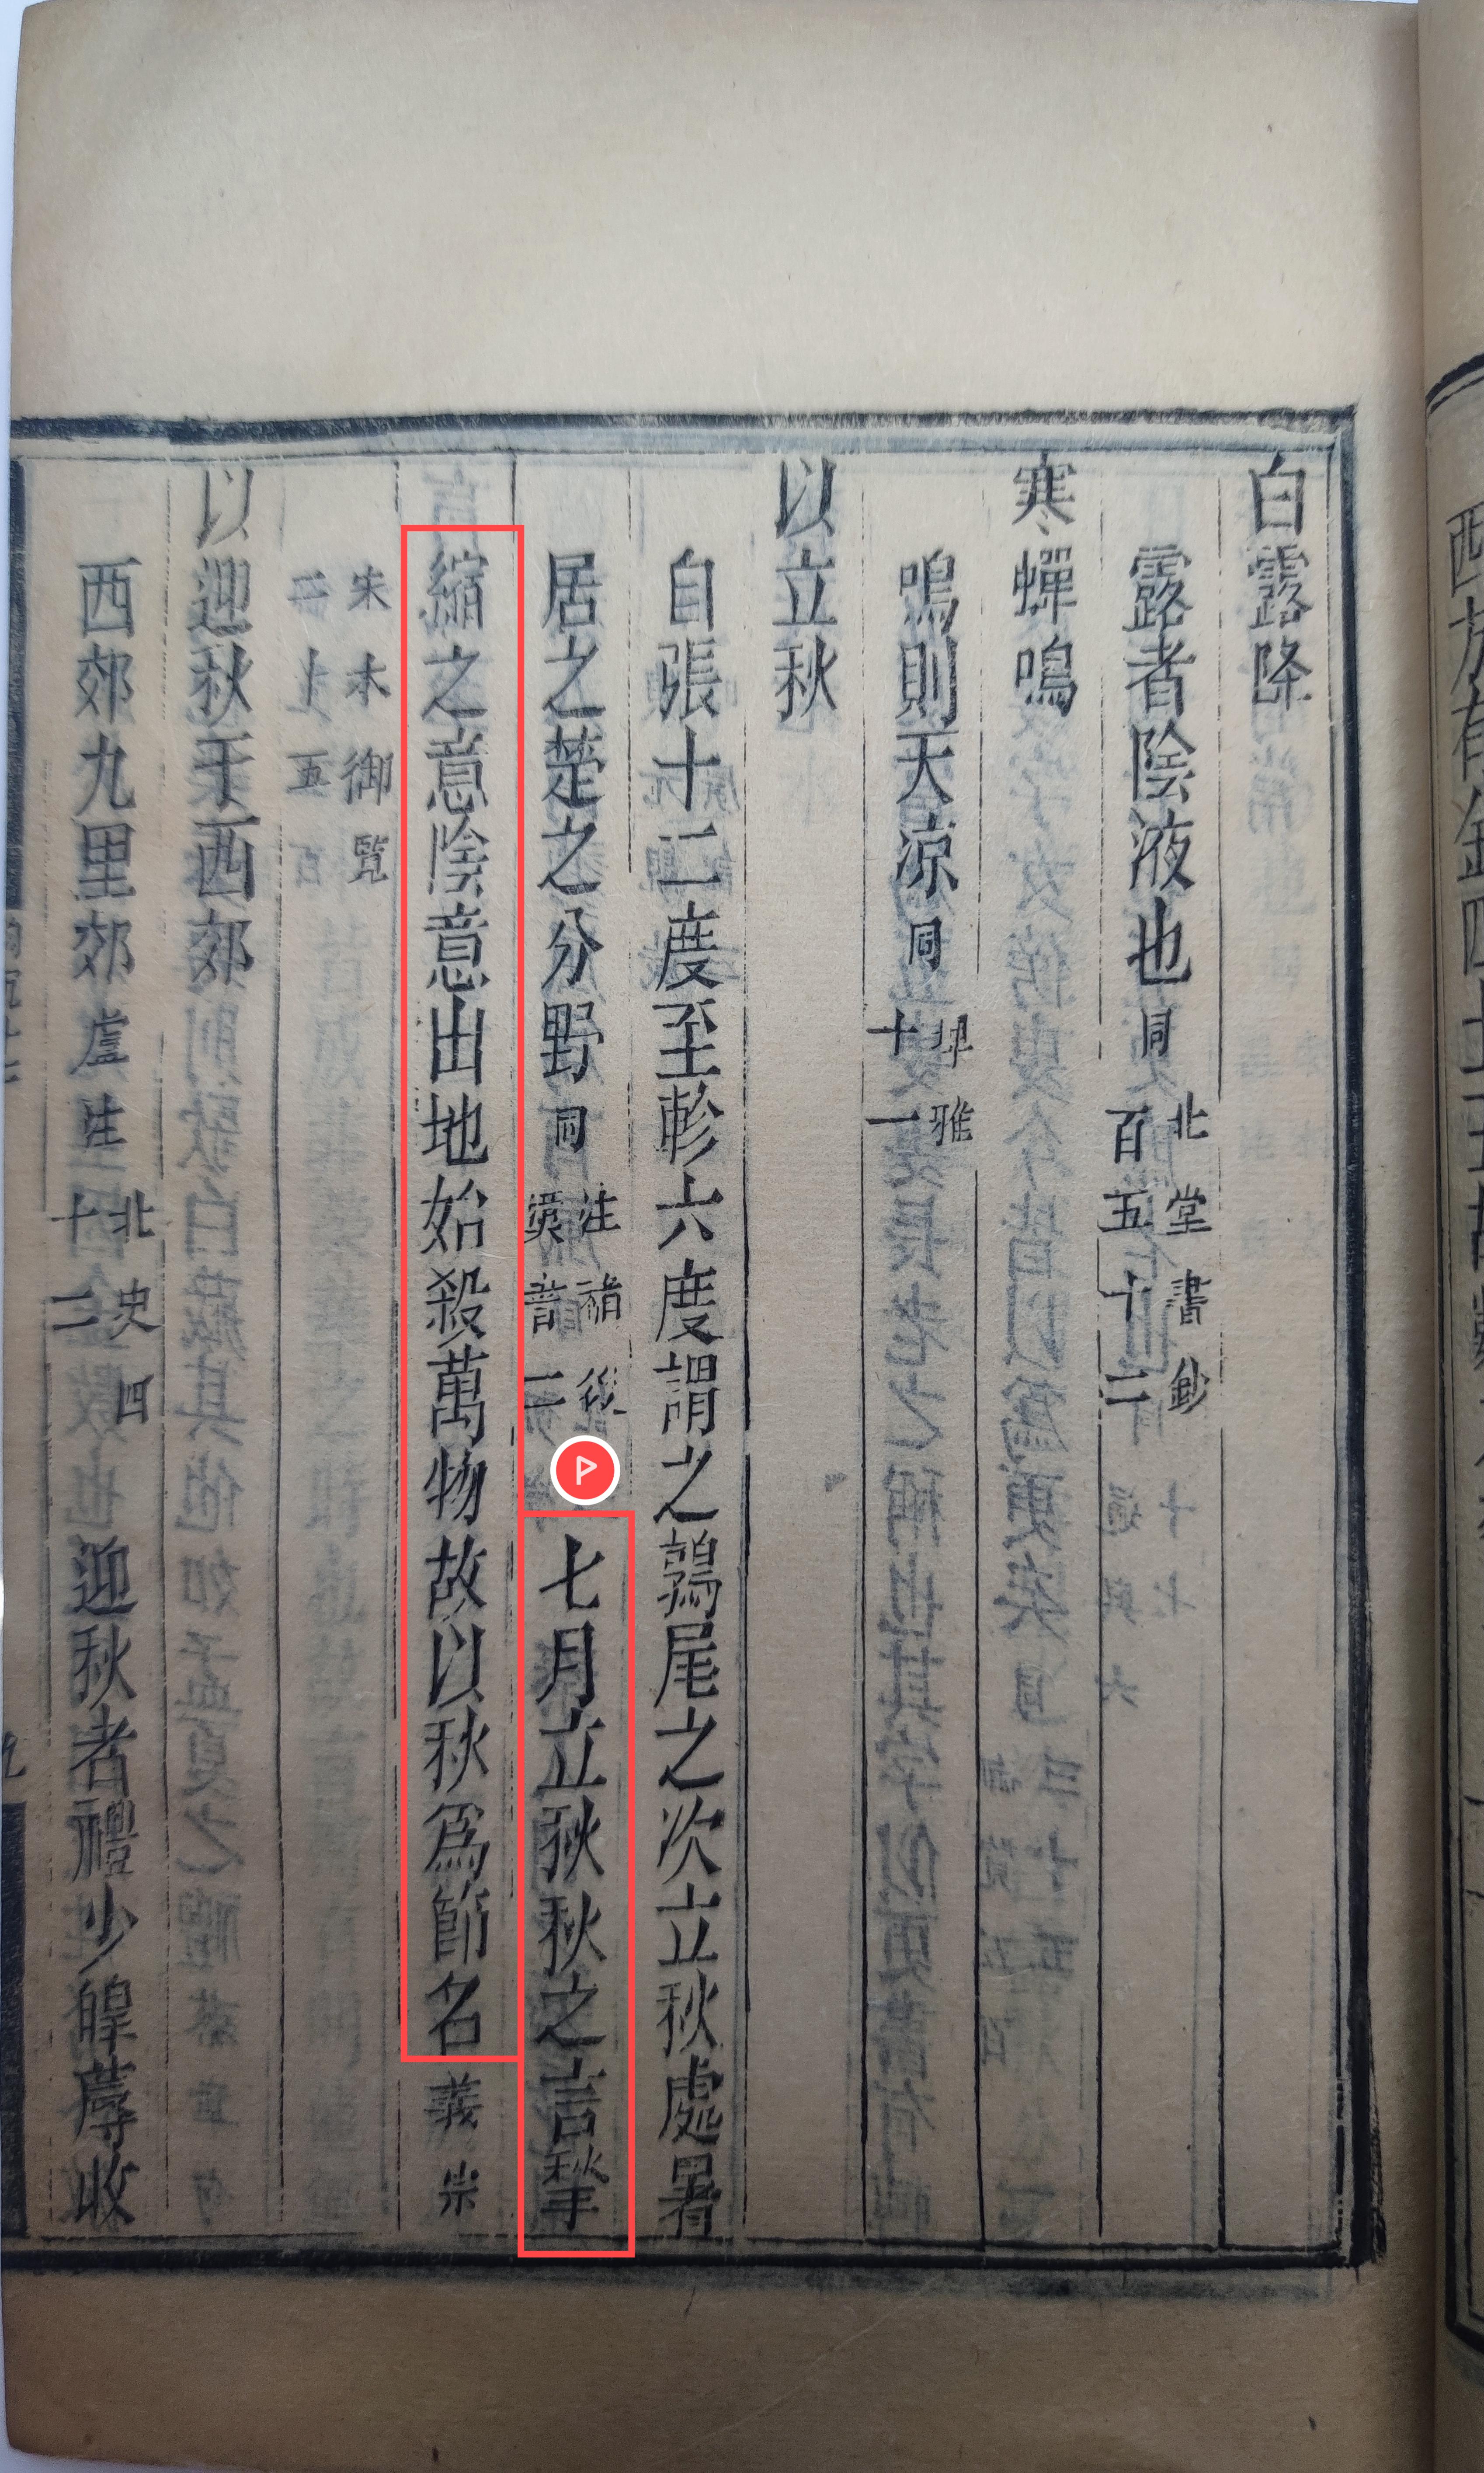 白露降
露者陰液也同北堂書鈔百五十二
寒蟬鳴
鳴則天涼同埤雅十一
以立秋
自張十二度至軫六度謂之鶉尾之次立秋處暑
居之楚之分野同注補後漢書二 七月立秋秋之言揫
縮之意陰意出地始殺萬物故以秋爲節名義宗
宋本御覽二十五
以迎秋于西郊
西郊九里郊盧注北史四十二 迎秋者禮少皞蓐收